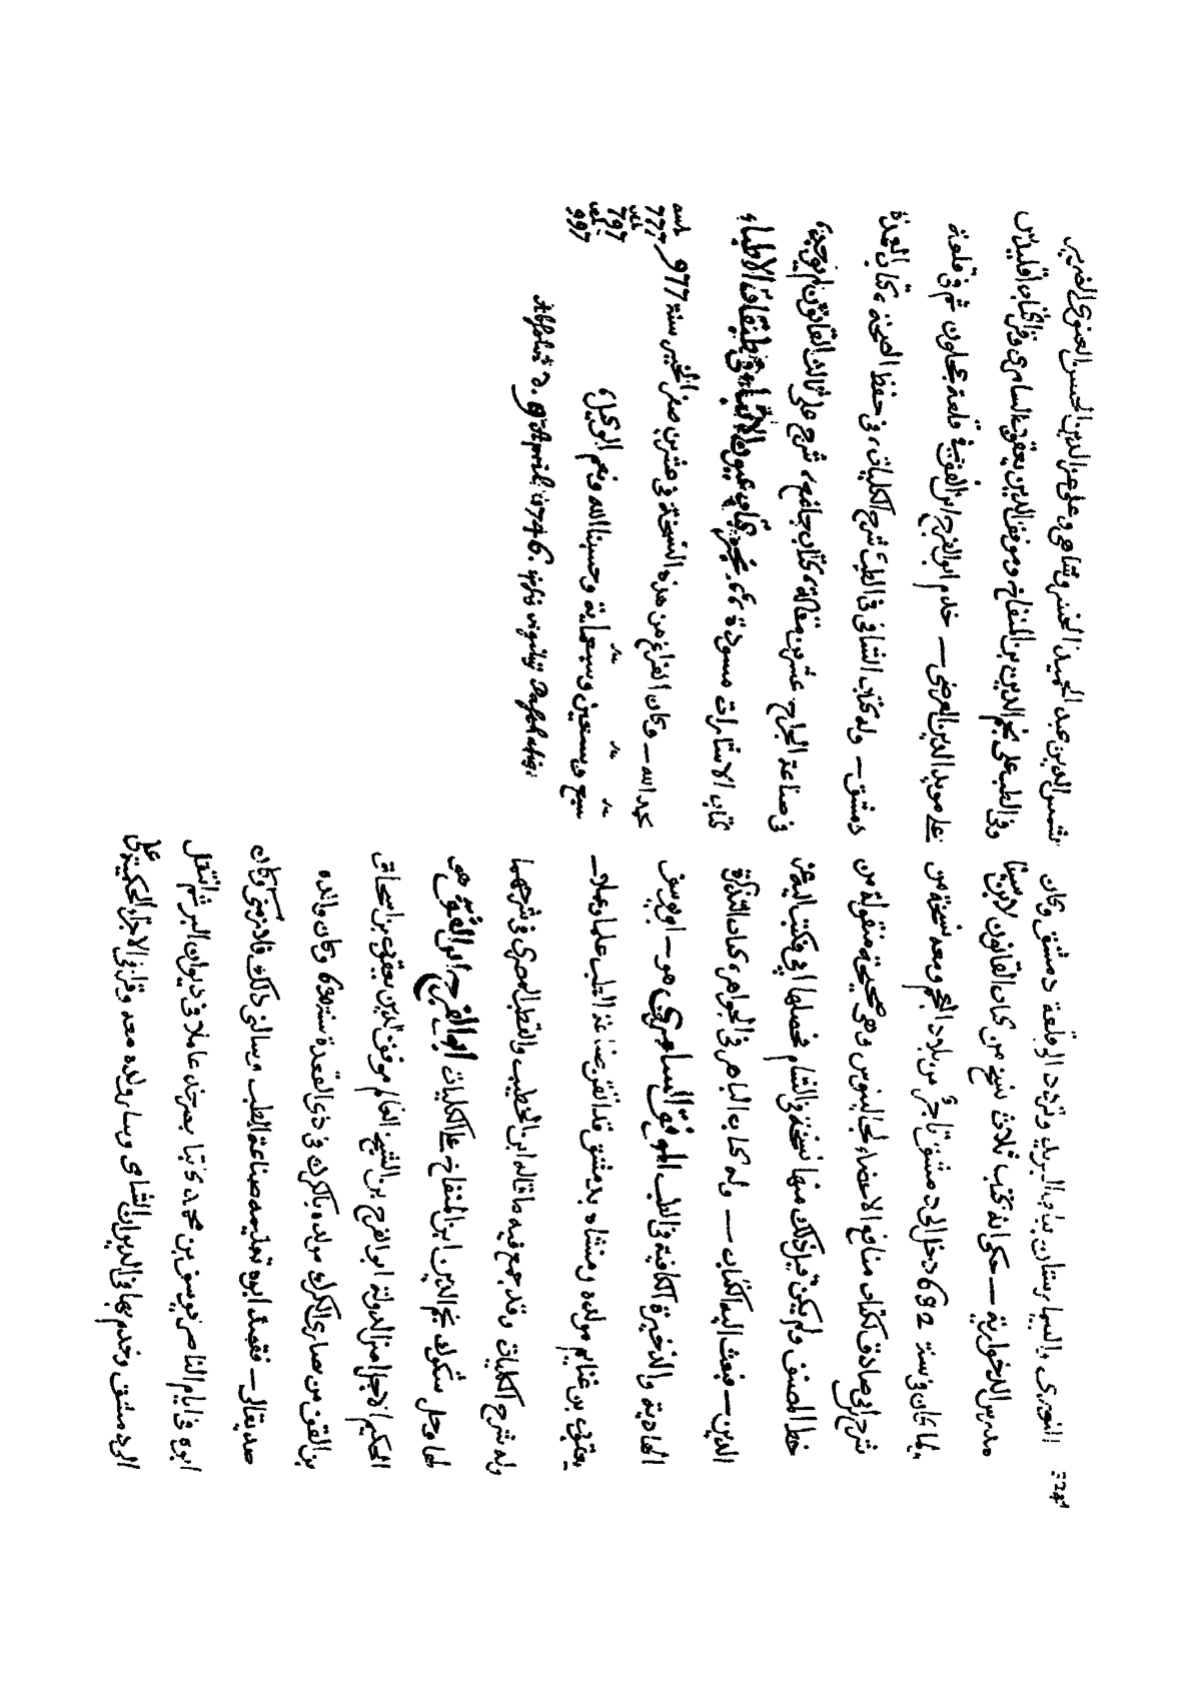 النوري والبيمارستان بباب البريد وتردد الى قلعة دمشق وكان
مدرس الدخوارية — حكى انه كتب ثلاث نسخ من كتاب القانون لابن سينا
ولما كان في سنة 632 دخل الى دمشق تاجر من بلاد العجم ومعه نسخة من
شرح ابن صادق لكتاب منافع الاعضاء لجالينوس وهي صحيحة منقولة من
خط المصنف ولم يكن قبل ذلك منها نسخة في الشام فحصلها ابي فكتب اليه
الدين — فبعث اليه الكتاب — وله كتاب الباهر في الجواهر، كتاب التذكرة
الهادية والذخيرة الكافية في الطب الموفق السامري هو — ابو يوسف
يعقوب بن غنايم مولده ومنشاه بدمشق قد اتقن صناعة الطب علما وعملا —
وله شرح الكليات وقد جمع فيه ما قاله ابن الخطيب والقطب المصري في شرحهما
لها وحل شكوك نجم الدين ابن المنفاخ على الكليات ابو الفرج ابن القف هو
الحكيم الاجل امين الدولة ابو الفرج بن الشيخ العالم موفق الدين يعقوب بن اسحاق
بن القف من نصارى الكرك مولده بالكرك في ذي القعدة سنة 630 وكان والده
صديقا لي — فقصد ابوه تعليمه صناعة الطب وسالني ذلك فلازمني وكان
ابوه في ايام الناصر يوسف بن محمد كاتبا بصرخد عاملا في ديوان البر ثم انتقل
الى دمشق وخدم بها في الديوان الشامي وسار ولده معه وقرا في الاجزاء الحكمية على
شمس الدين عبد الحميد الخسروشاهي وعلى عز الدين الحسن الغنوي الضرير
وفي الطب على نجم الدين بن المنفاخ وموفق الدين يعقوب السامري وقرا كتاب اقليدس
على مويد الدين العرضي — خدم ابو الفرج ابن القف في قلعة عجلون ثم في قلعة
دمشق — وله كتاب الشافي في الطب، شرح الكليات، في حفظ الصحة، كتاب العمدة
في صناعة الجراح عشرين مقالة، كتاب جامع، شرح على ثالث القانون لم يوجد،
كتاب الاشارات مسودة، تم نجز كتاب عيون الانباء في طبقات الاطباء
بحمد الله — وكان الفراغ من هذه النسخة في عشرين صفر الخير سنة 977
سبع وسبعين وتسعماية وحسبنا الله ونعم الوكيل
777
797
997
Absolvi d. 9 April 1746.